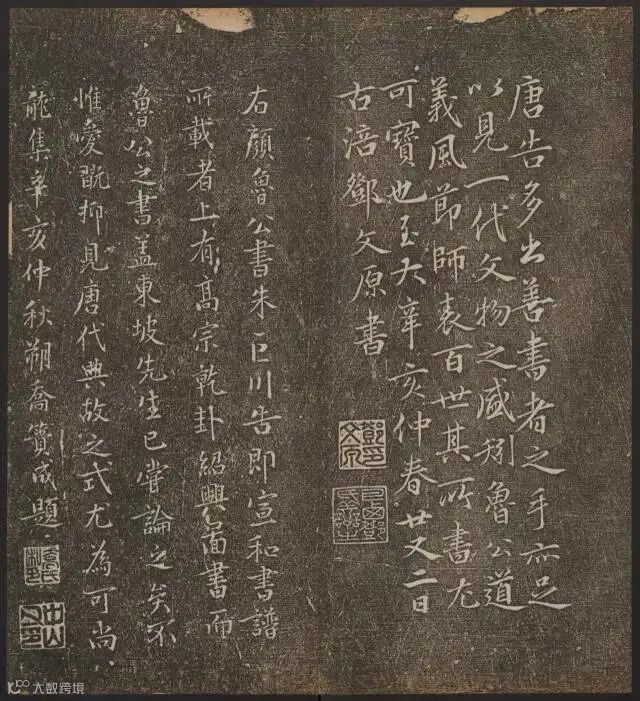 唐告多出善書者之手亦足
以見一代文物之盛矧魯公道
義風節師表百世其所書尤
可寶也至大辛亥仲春廿又二日
古涪鄧文原書
右顏魯公書朱巨川告即宣和書譜
所載者上有高宗乾卦紹興啚書而
魯公之書蓋東坡先生已嘗論之矣不
惟愛翫抑見唐代典故之式尤為可尚
龍集辛亥仲秋朔喬簣成題
大数跨境